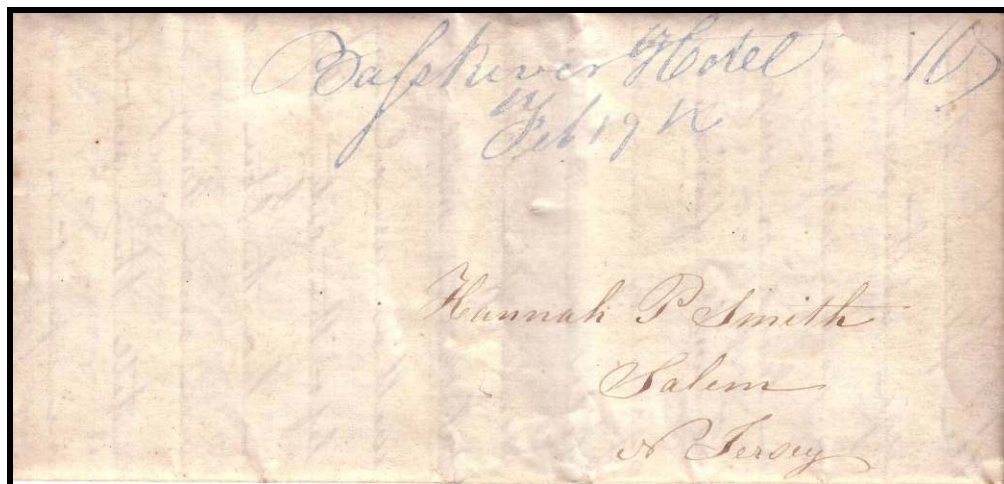 Baſs River Hotel 10
Feb 19 th
Hannah P Smith
Salem
N Jersey